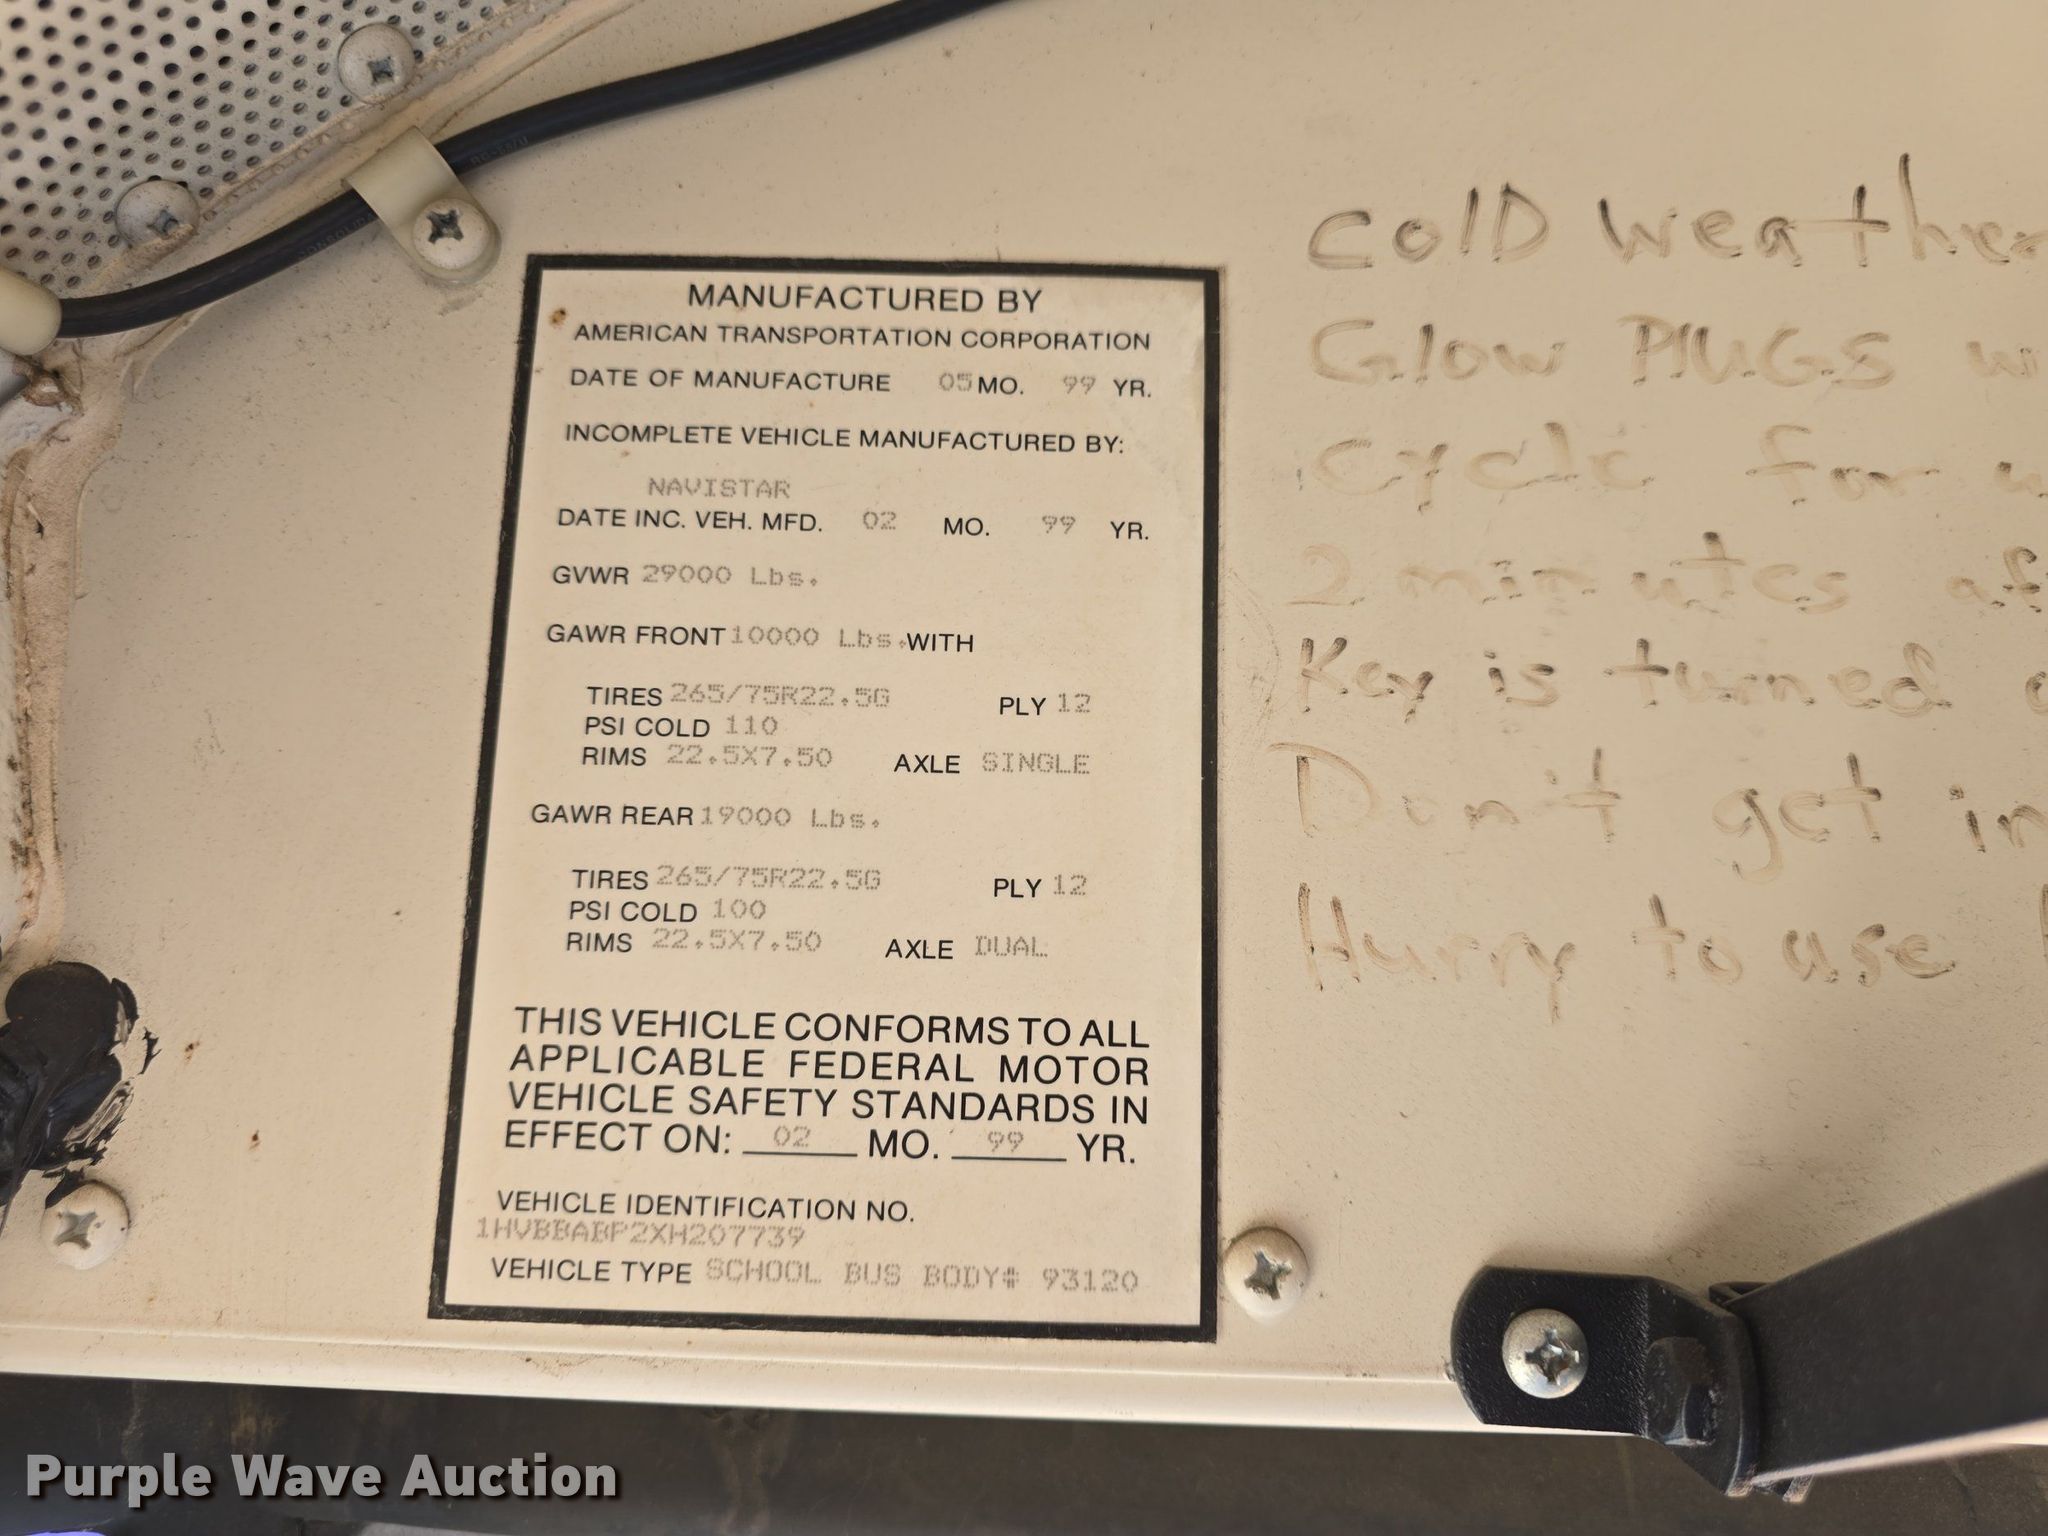 MANUFACTURED BY
AMERICAN TRANSPORTATION CORPORATION
DATE OF MANUFACTURE 05 MO. 99 YR.
INCOMPLETE VEHICLE MANUFACTURED BY:
NAVISTAR
DATE INC. VEH. MFD. 02 MO. 99 YR.
GVWR 29000 Lbs.
GAWR FRONT 10000 Lbs. WITH
TIRES 265/75R22.5G PLY 12
PSI COLD 110
RIMS 22.5X7.50 AXLE SINGLE
GAWR REAR 19000 Lbs.
TIRES 265/75R22.5G PLY 12
PSI COLD 100
RIMS 22.5X7.50 AXLE DUAL
THIS VEHICLE CONFORMS TO ALL
APPLICABLE FEDERAL MOTOR
VEHICLE SAFETY STANDARDS IN
EFFECT ON: 02 MO. 99 YR.
VEHICLE IDENTIFICATION NO.
1HVBBABP2XH207739
VEHICLE TYPE SCHOOL BUS BODY# 93120
Cold Weather
Glow PlUGS
Cycle for
2 minutes
Key is turned
Don't get in
Hurry to use
Purple Wave Auction